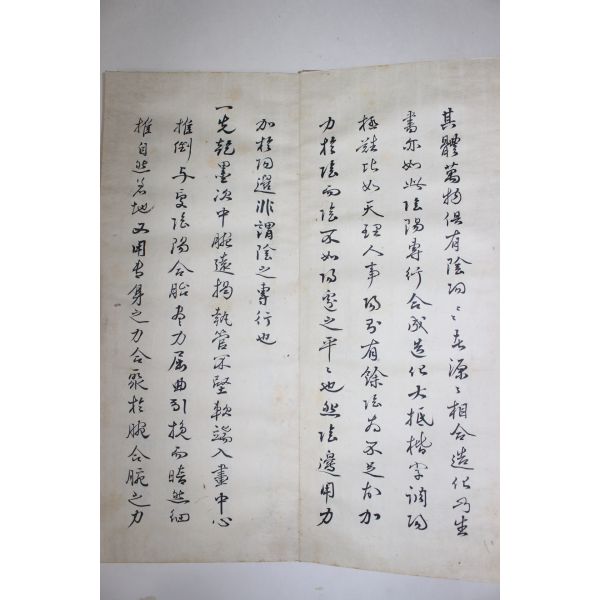 其體萬物俱有陰陽〻〻本源〻〻相合造化乃生
書亦如此陰陽專行合成造化大抵楷字謂陽
極難比如天理人事陽有餘陰為不足故加
力於陰而陰不如陽邊之平〻也然陰邊用力
加於陽邊非謂陰之專行也
一先把墨次中腕遠揭執管不堅軟端入畫中心
推倒與更陰陽合胎盡力屈曲引換而暗然細
推自然著地又用帝身之力合聚於腕合腕之力